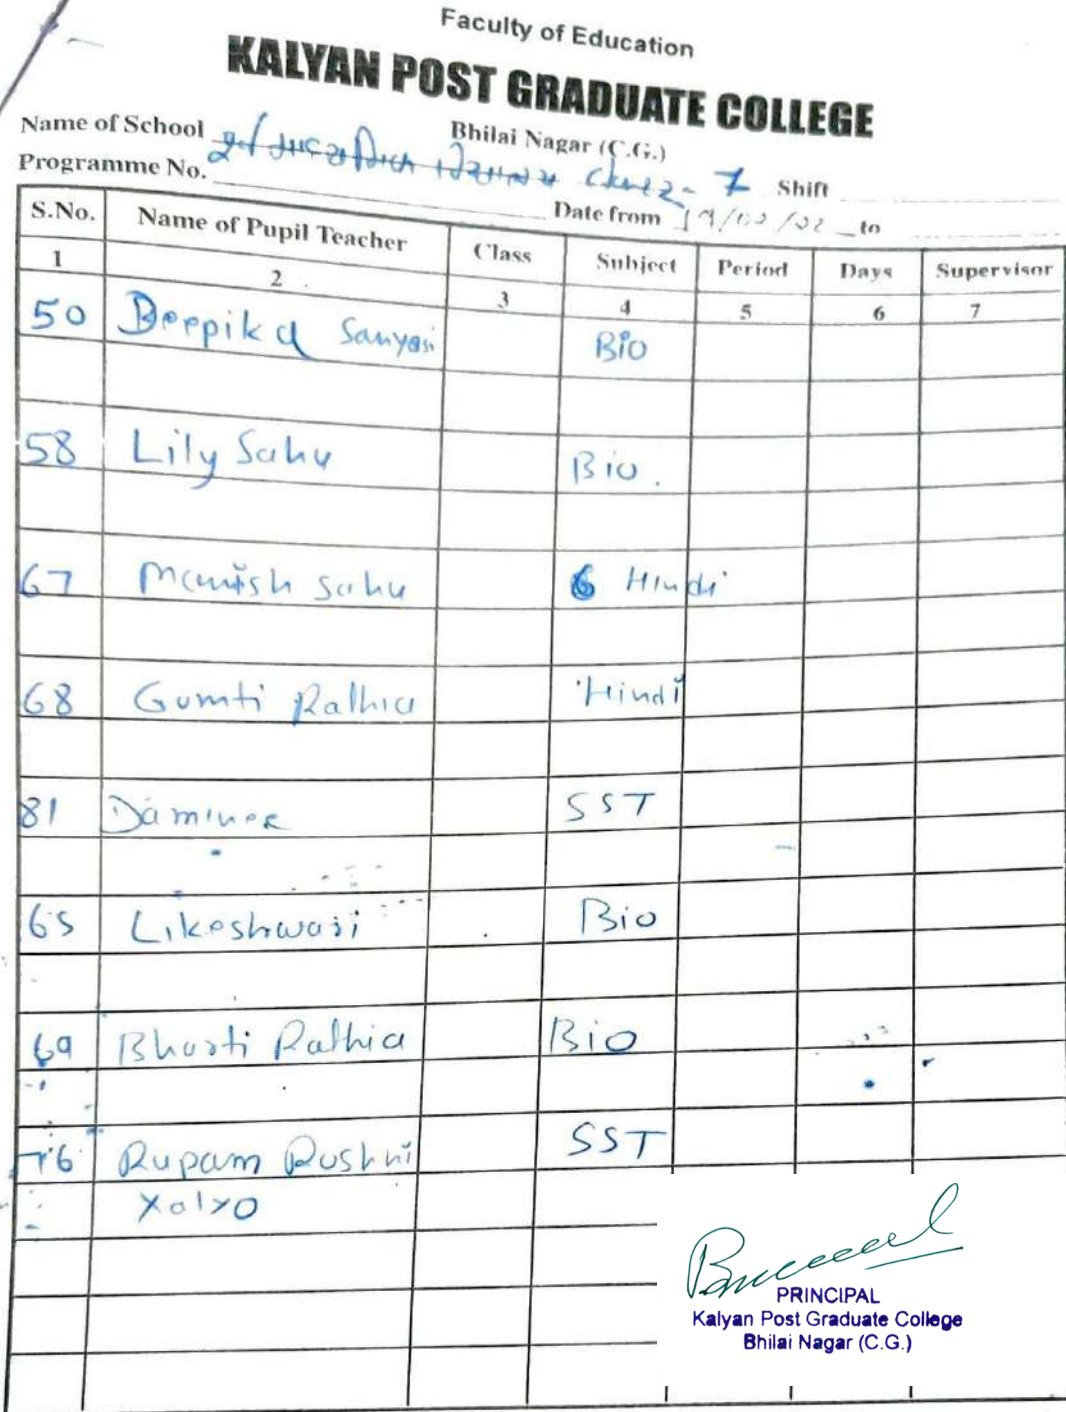 Faculty of Education
KALYAN POST GRADUATE COLLEGE
Bhilai Nagar (C.G.)
Name of School 7 Shift
Programme No. Date from 19/02/22 to
S.No. Name of Pupil Teacher Class Subject Period Days Supervisor
1 2 3 4 5 6 7
50 Deepika Sanyasi Bio
58 Lily Sahu Bio.
67 Manish Sahu Hindi
68 Gumti Rathia Hindi
81 SST
65 Likeshwari Bio
69 Bharti Rathia Bio
76 Rupam Roshni SST
PRINCIPAL
Kalyan Post Graduate College
Bhilai Nagar (C.G.)